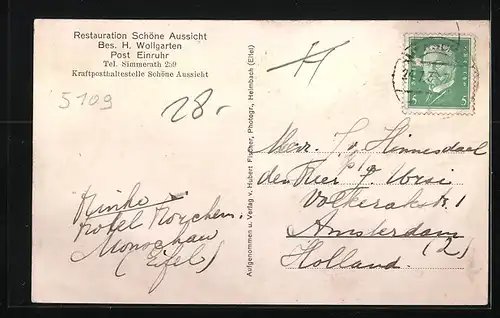 Restauration Schöne Aussicht
Bes. H. Wollgarten
Post Einruhr
Tel. Simmerath 259
Kraftposthaltestelle Schöne Aussicht
5109
28.-
H
Aufgenommen u. Verlag v. Hubert Fischer, Photogr., Heimbach (Eifel)
5 5
Mevr. J. v. Hinnesdael
p/a
den Heer F.
Volkerakstr. 1
Amsterdam
(2)
Holland.
Rinke
Hotel Horchem.
Monschau
(Eifel)